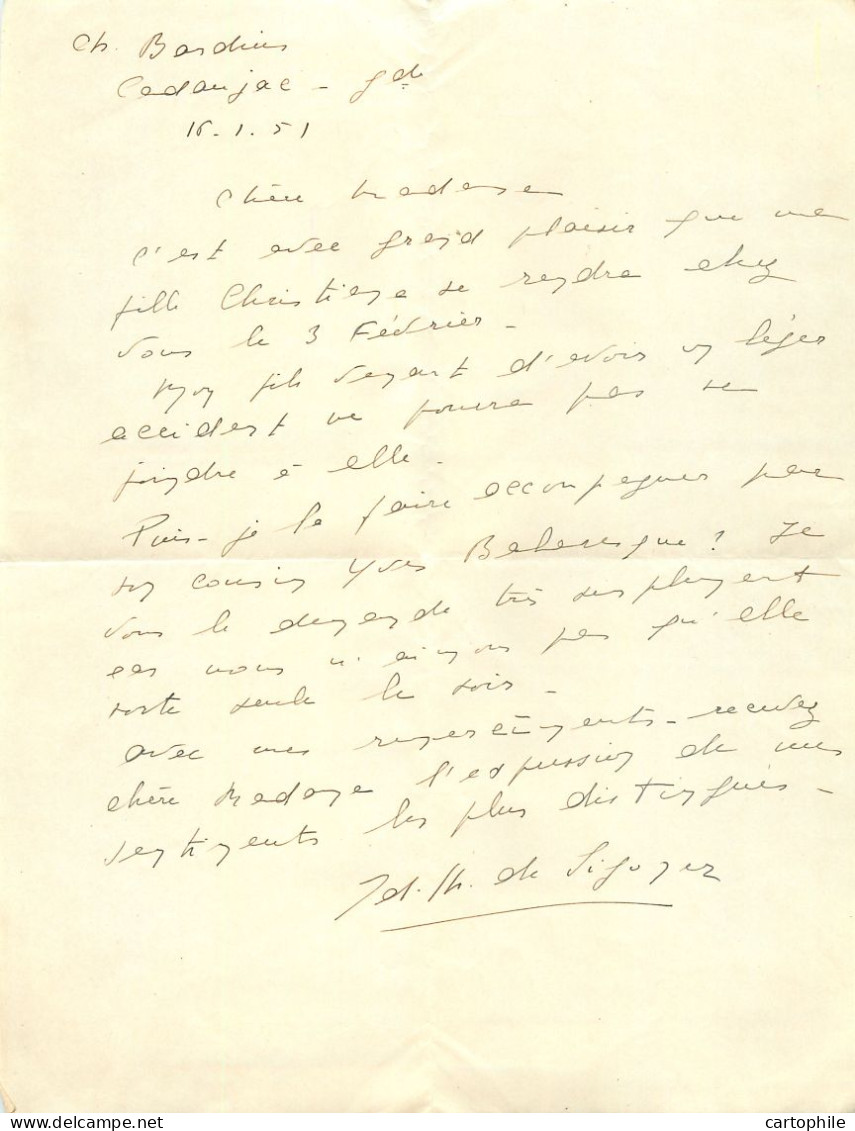 Ch. Bardins
Cadaujac - Gde
16.1.51
Chère Madame
C'est avec grand plaisir que ma
fille Christiane se rendra chez
vous le 3 Février -
Mon fils venant d'avoir un léger
accident ne pourra pas se
joindre à elle -
Puis-je la faire accompagner par
son cousin Yves Balaresque ? Je
vous le demande très simplement
car nous n'aimons pas qu'elle
sorte seule le soir -
Avec mes remerciements - recevez
chère Madame l'expression de mes
sentiments les plus distingués -
de Sigoyer
cartophile